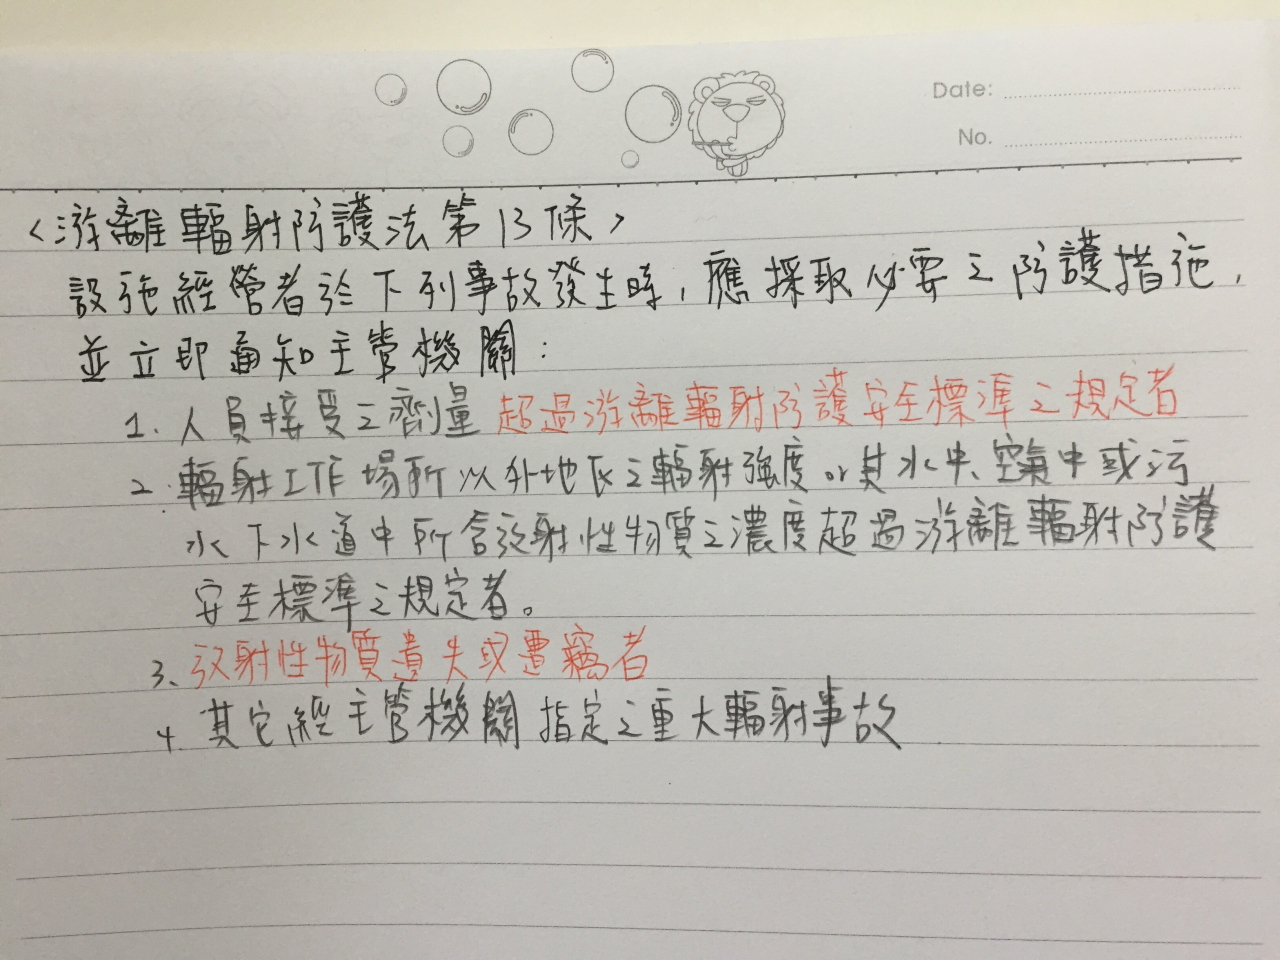 Date:
No.
<游離輻射防護法第13條>
設施經營者於下列事故發生時，應採取必要之防護措施，
並立即通知主管機關：
1. 人員接受之劑量 超過游離輻射防護安全標準之規定者
2. 輻射工作場所以外地區之輻射強度or其水中、空氣中或污
水下水道中所含放射性物質之濃度超過游離輻射防護
安全標準之規定者。
3、放射性物質遺失或遭竊者
4. 其它經主管機關指定之重大輻射事故